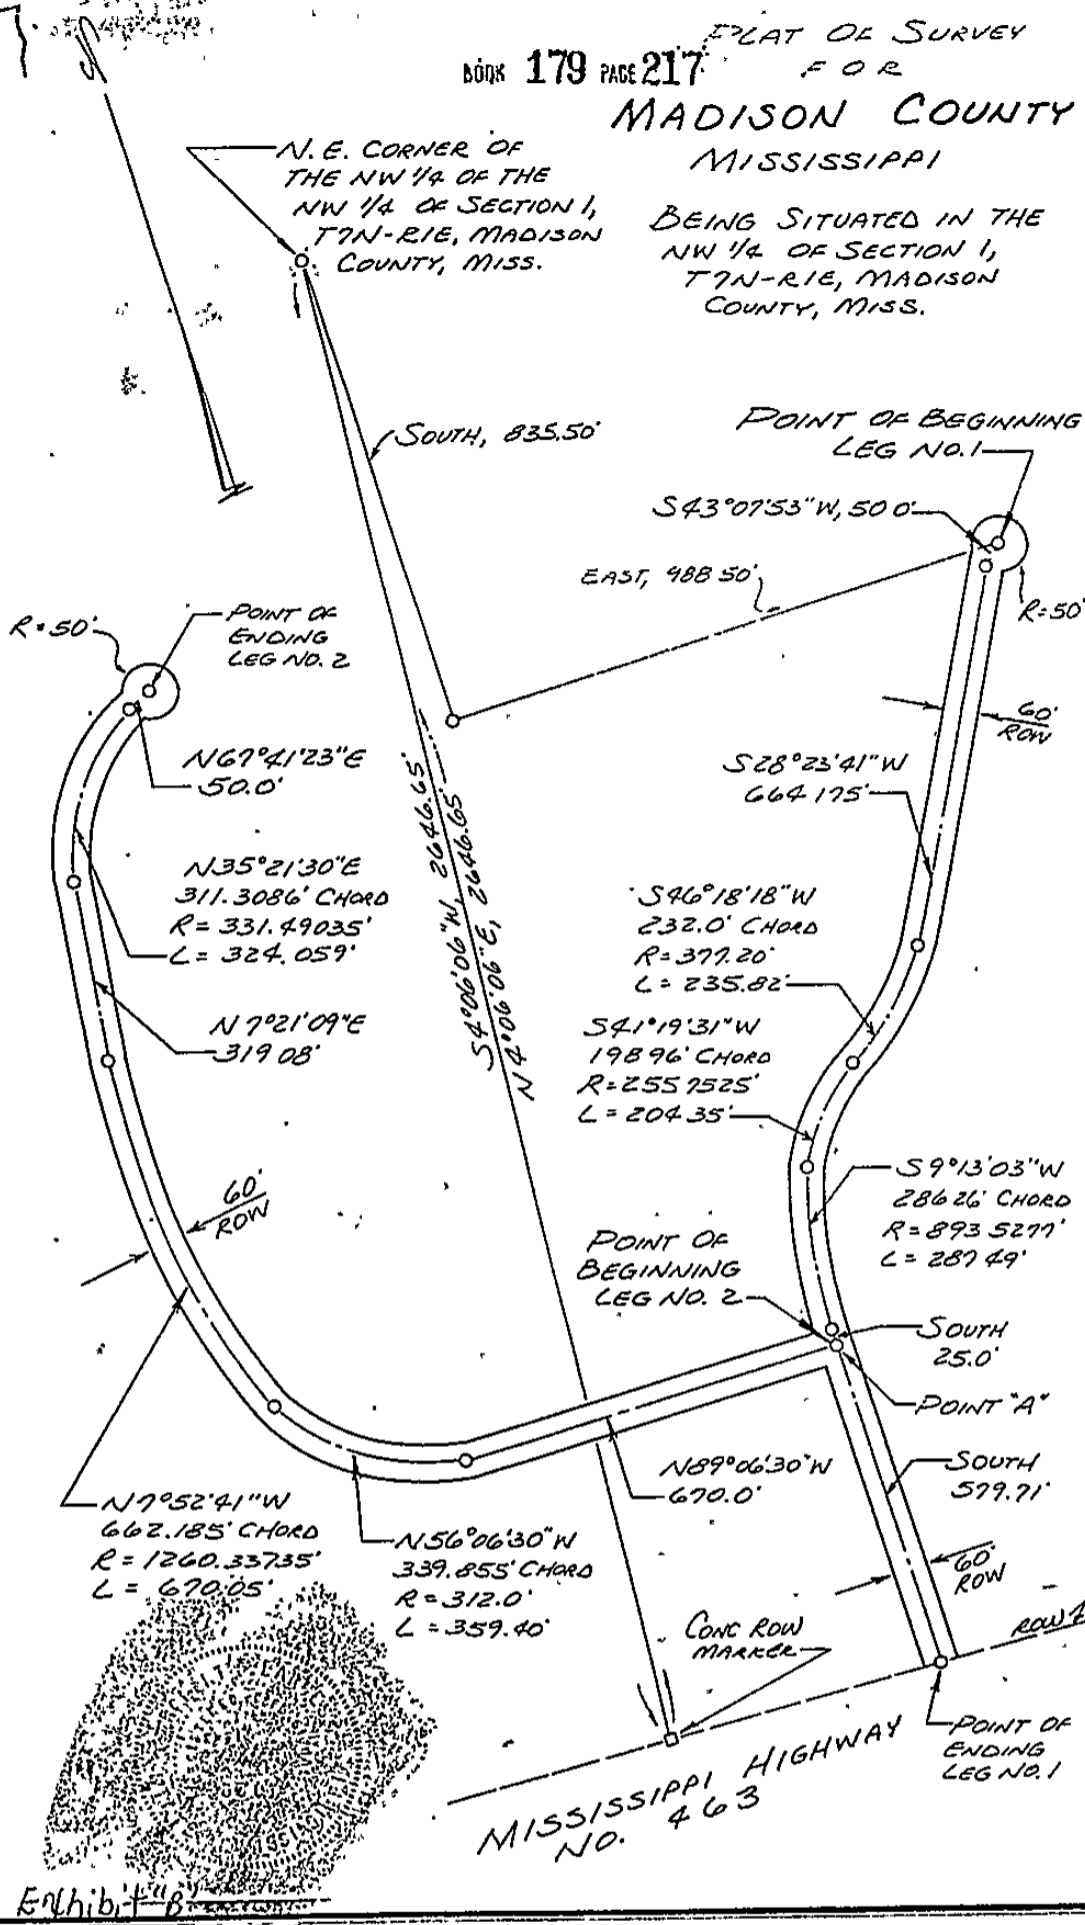 BOOK 179 PAGE 217
PLAT OF SURVEY
FOR
MADISON COUNTY
MISSISSIPPI
BEING SITUATED IN THE
NW 1/4 OF SECTION 1,
T7N-R1E, MADISON
COUNTY, MISS.
N.E. CORNER OF
THE NW 1/4 OF THE
NW 1/4 OF SECTION 1,
T7N-R1E, MADISON
COUNTY, MISS.
SOUTH, 835.50'
POINT OF BEGINNING
LEG NO. 1
S43°07'53"W, 50 0'
EAST, 988 50'
R=50'
R=50'
POINT OF
ENDING
LEG NO. 2
60'
ROW
N67°41'23"E
50.0'
S28°23'41"W
664 175'
N35°21'30"E
311.3086' CHORD
R = 331.49035'
L = 324.059'
S4°06'06"W, 2646.65'
N4°06'06"E, 2646.65'
S46°18'18"W
232.0' CHORD
R=377.20'
L = 235.82'
N 7°21'09"E
319 08'
S41°19'31"W
198 96' CHORD
R=255 7525'
L = 204 35'
60'
ROW
S 9°13'03"W
286 26' CHORD
R=893 5277'
L = 287 49'
POINT OF
BEGINNING
LEG NO. 2
SOUTH
25.0'
POINT "A"
N89°06'30"W
670.0'
SOUTH
579.71'
N7°52'41"W
662.185' CHORD
R = 1260.33735'
L = 670.05'
N56°06'30"W
339.855' CHORD
R = 312.0'
L = 359.40'
60'
ROW
CONC ROW
MARKER
ROW
POINT OF
ENDING
LEG NO. 1
MISSISSIPPI HIGHWAY
NO. 463
Exhibit "B"